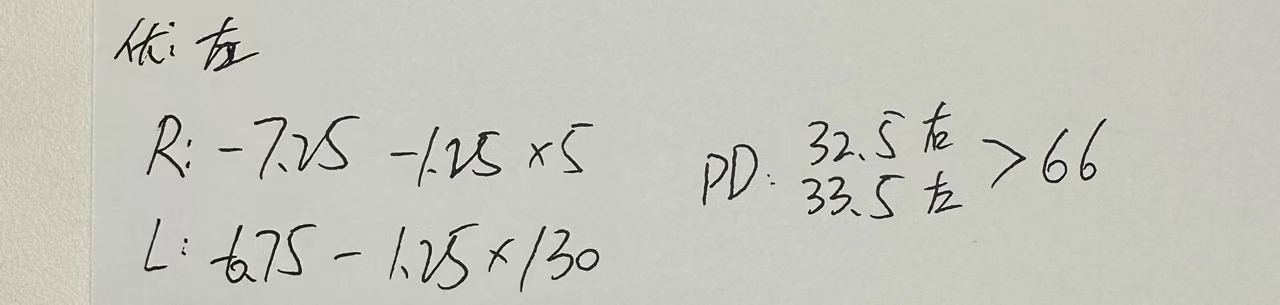 优: 左
R: -7.25 -1.25 ×5
L: -6.75 - 1.25 ×130
PD: 32.5 右
33.5 左
> 66